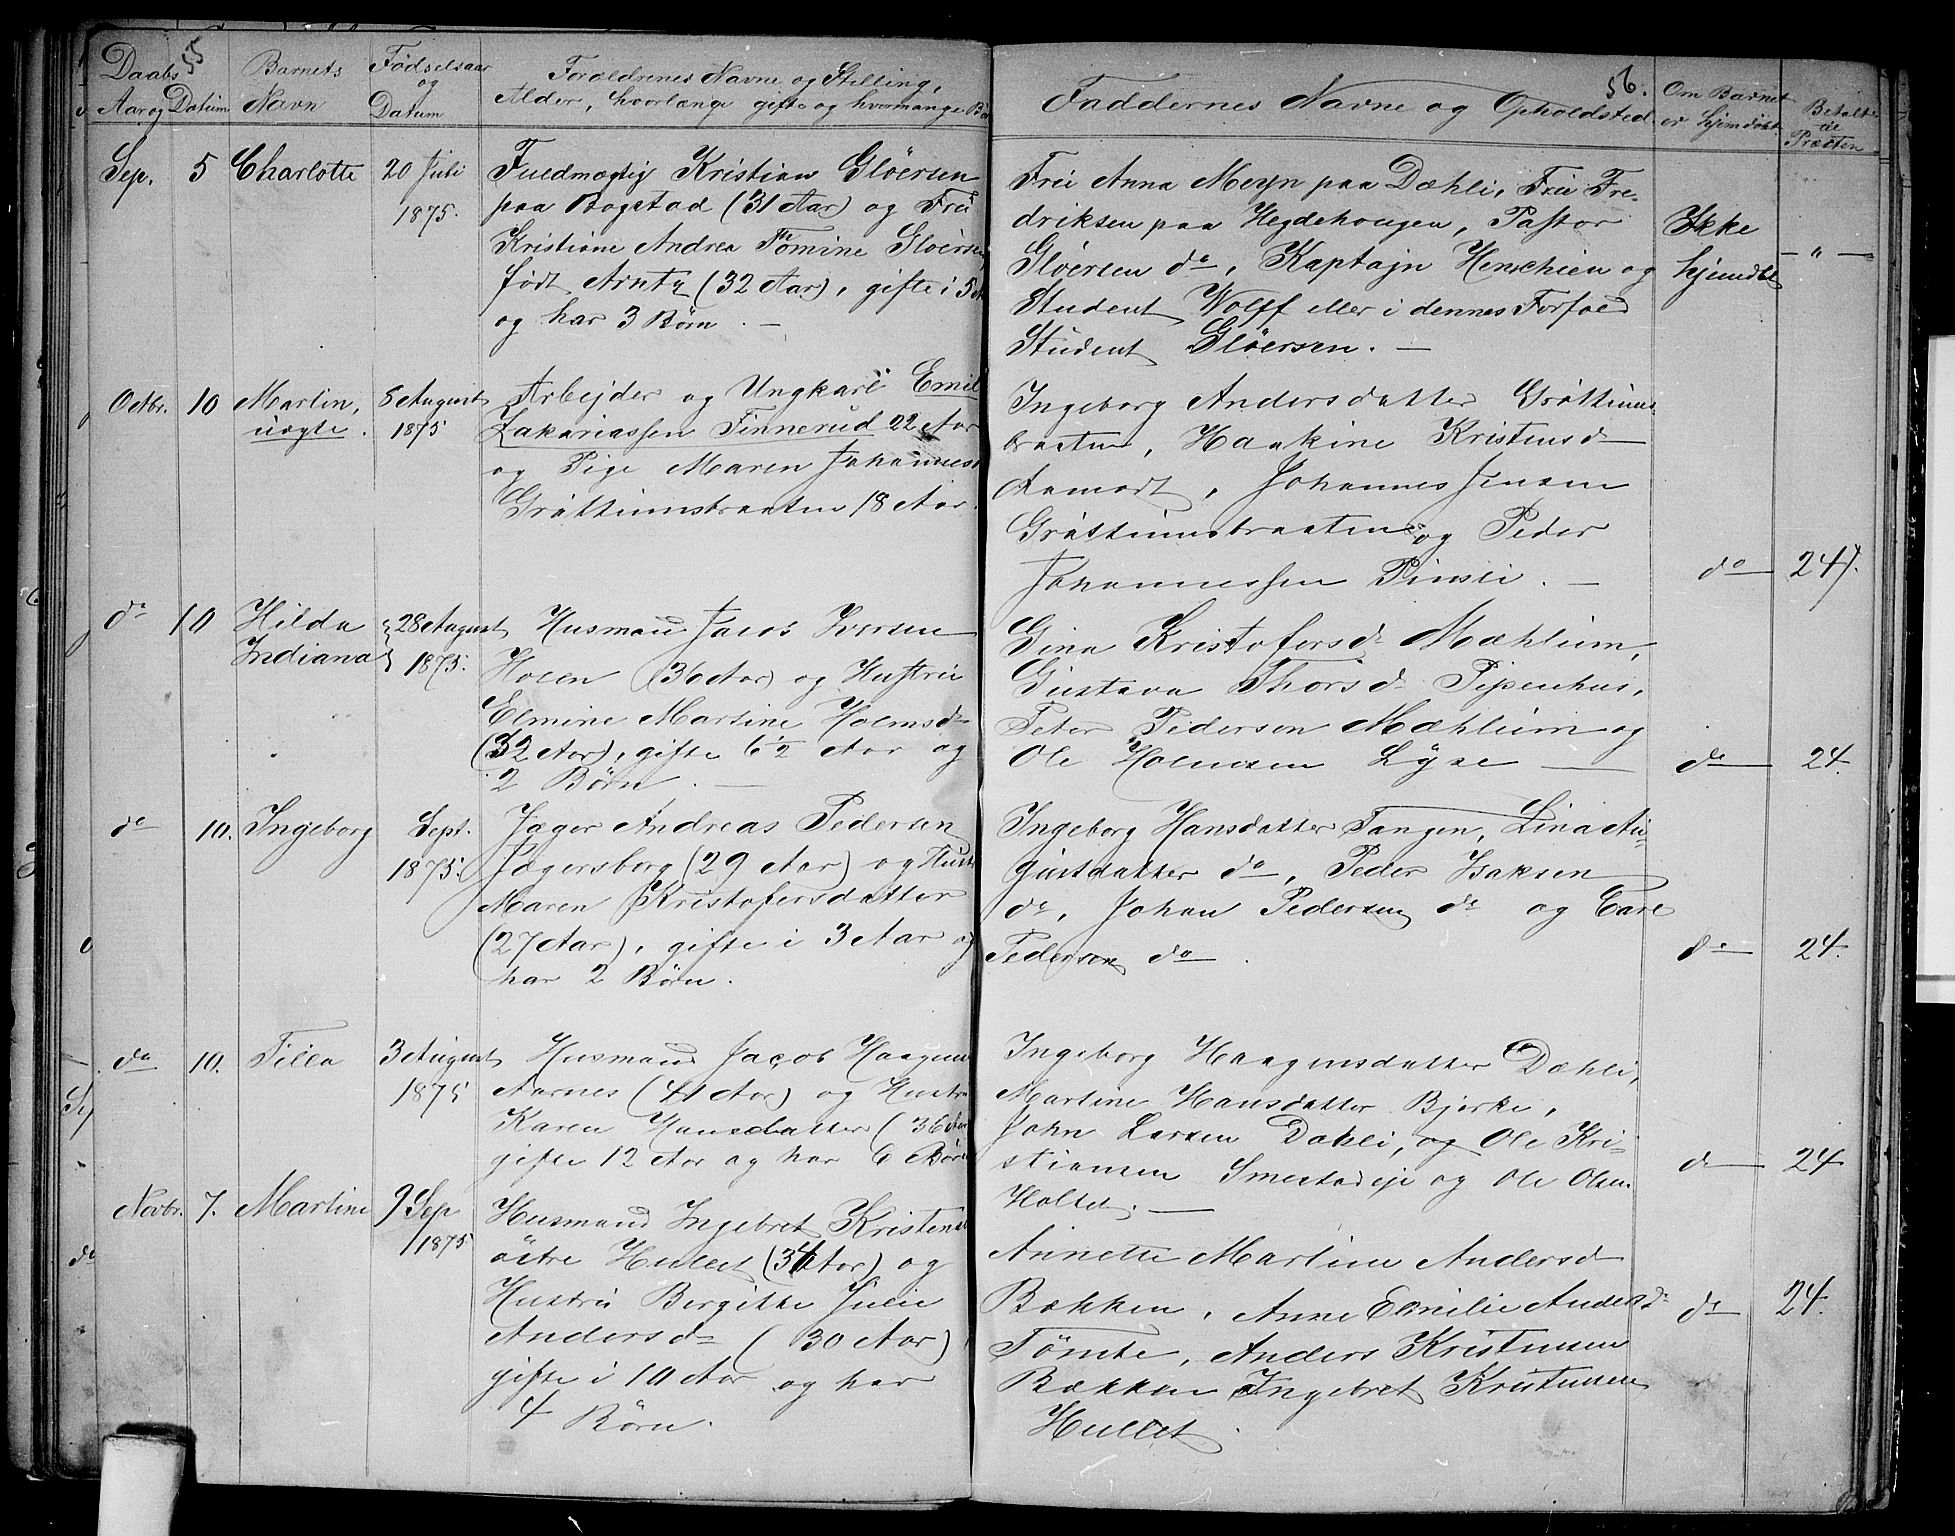 55
Daabs Barnets Fødselsaar Forældrenes Navne og Stilling,
Aar og Datum Navn og Datum Alder, hvorlænge gifte og hvormange
Sep. 5 Charlotte 20 Juli 1875.
Fuldmægtig Kristian Glöersen
paa Bogstad (31 Aar) og Fru
Kristiane Andrea Tomine Glöersen
født Arntz (32 Aar), gifte i 5
og har 3 Børn. —
Octbr. 10 Martin, uægte. 8 August 1875
Arbejder og Ungkarl Emil
Zakariassen Finnerud 22 Aar
og Pige Maren Johannes
Gråttumsbraaten 18 Aar.
do 10 Hilda Indiana 28 August 1875.
Husmand Jacob Iversen
Holen (36 Aar) og Hustru
Elmine Martine Holmsd
(32 Aar), gifte 6 1/2 Aar og
2 Børn. —
do 10. Ingeborg Sept. 1875.
Jæger Andreas Pedersen
Jægersborg (29 Aar) og Hust
Maren Kristofersdatter
(27 Aar), gifte i 3 Aar og
har 2 Børn.
do 10. Tilla 3 August 1875
Husmand Jacob Haagens
Aarnes (41 Aar) og Hustr
Karen Hansdatter (36 Aar
gifte 12 Aar og har 6 Børn
Novbr. 7. Martine 9 Sep 1875
Husmand Ingebret Kristens
östre Hullet (34 Aar) og
Hustru Bergitte Julie
Andersd (30 Aar)
gifte i 10 Aar og har
4 Børn.
56.
Faddernes Navne og Opholdsted Om Barnet er hjemdøbt Betalt til Præsten
Fru Anna Meyn paa Dæhli, Fru Fre-
driksen paa Hegdehougen, Pastor
Glöersen do, Kaptajn Henschien og
Student Wolff eller i dennes Forfald
Student Glöersen. —
Ikke hjemdøbt — " —
Ingeborg Andersdatter Gråttums
braaten, Haakine Kristensd
Aamodt, Johannes Jensen
Gråttumsbraaten og Peder
Johannessen Pinsli. — do 24
Gina Kristofersd Mæhlum,
Gustava Thorsd Pipenhus,
Peter Pedersen Mæhlum og
Ole Holmsen Lyse — do 24.
Ingeborg Hansdatter Tangen, Lina Au-
gustdatter do, Peder Isaksen
do, Johan Pedersen do og Carl
Pedersen do. do 24.
Ingeborg Haagensdatter Dæhli,
Martine Hansdatter Bjerke,
John Larsen Dæhli, og Ole Kri-
stiansen Smestadeje og Ole Olsen
Holtet. — d 24
Annette Martine Andersd
Bækken, Anne Emilie Andersd
Tömte, Anders Kristensen
Bækken Ingebret Kristensen
Hullet. do 24.